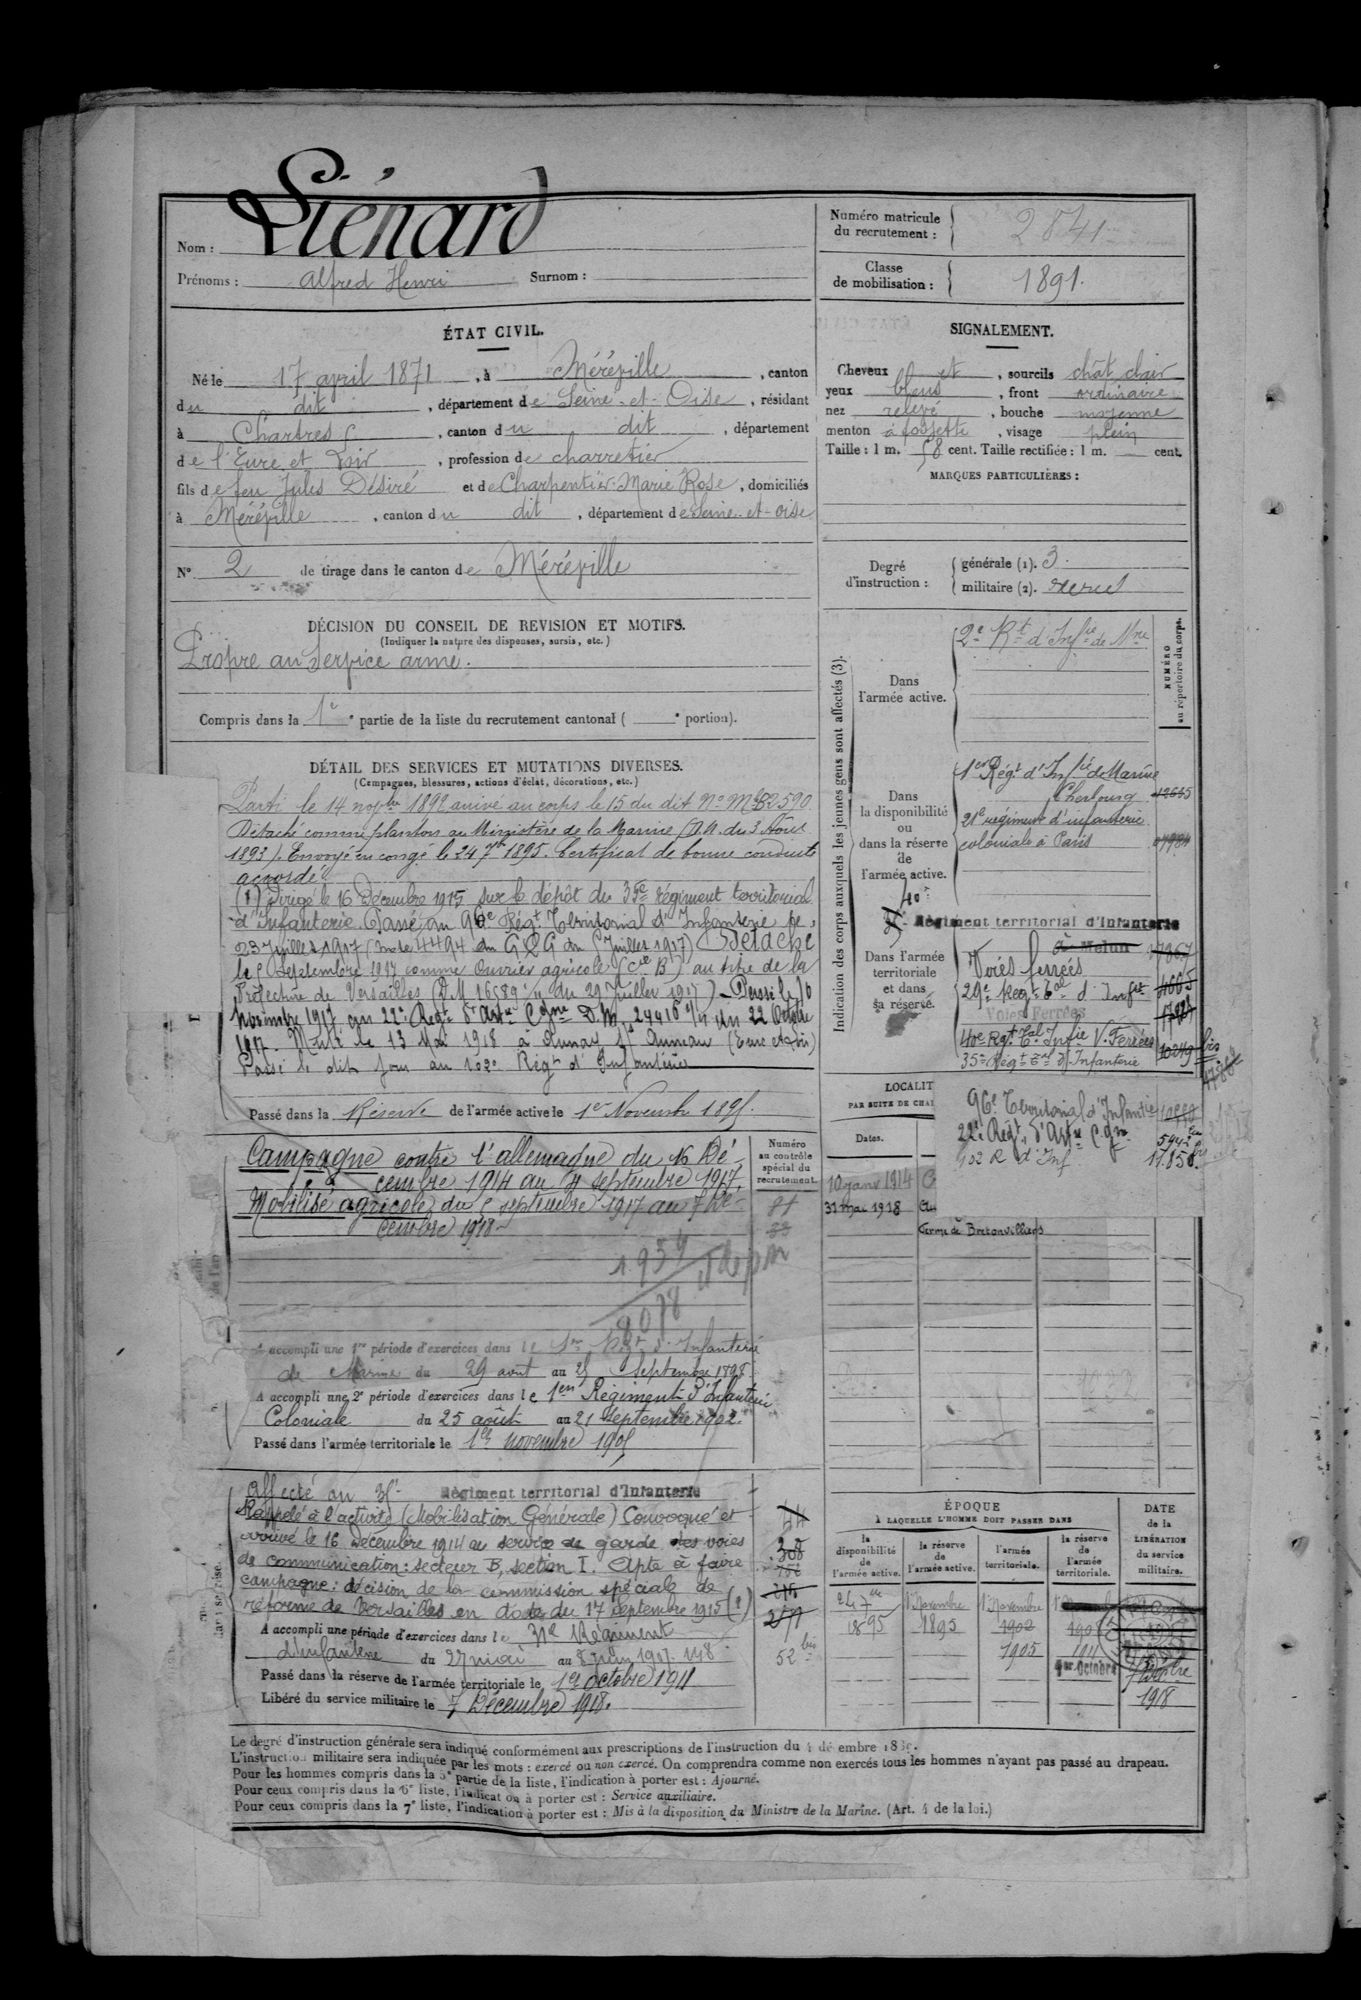 Nom : Liénard
Prénoms : Alfred Henri Surnom :
Numéro matricule du recrutement : 2841
Classe de mobilisation : 1891.
ÉTAT CIVIL.
Né le 17 avril 1871, à Méréville, canton
du dit, département de Seine-et-Oise, résidant
à Chartres, canton du dit, département
de l'Eure et Loir, profession de charretier
fils de feu Jules Désiré et de Charpentier Marie Rose, domiciliés
à Méréville, canton du dit, département de Seine-et-Oise
N° 2 de tirage dans le canton de Méréville
SIGNALEMENT.
Cheveux et, sourcils chât clair
yeux bleus, front ordinaire
nez relevé, bouche moyenne
menton à fossette, visage plein
Taille : 1 m. 58 cent. Taille rectifiée : 1 m. cent.
MARQUES PARTICULIÈRES :
Degré d'instruction :
générale (1). 3.
militaire (2). exercé
DÉCISION DU CONSEIL DE REVISION ET MOTIFS.
(Indiquer la nature des dispenses, sursis, etc.)
Propre au service armé.
Compris dans la 1e partie de la liste du recrutement cantonal ( e portion).
DÉTAIL DES SERVICES ET MUTATIONS DIVERSES.
(Campagnes, blessures, actions d'éclat, décorations, etc.)
Parti le 14 novbre 1892 arrivé au corps le 15 du dit No Mle 2590
Détaché comme planton au Ministère de la Marine du 3 Aout
1893). Envoyé en congé le 24 7bre 1895. Certificat de bonne conduite
accordé.
(1) Dirigé le 16 Décembre 1915 sur le dépôt du 35e Régiment territorial
d'Infanterie. Passé au 96e Régt Territorial d'Infanterie le
23 Juillet 1917 (Note 4494 du GQG du Juillet 1917) Détaché
le 5 Septembre 1917 comme Ouvrier agricole (Cie B) au titre de la
Préfecture de Versailles (D.M 16589 du 29 Juillet 1917) Passé le 16
novembre 1917 au 22e Regt d'Artie D.M. 27416 du 22 Octobre
1917. Muté le 13 Mai 1918 à Aunay ss Auneau (Eure et Loir)
Passé le dit jour au 102e Régt d'Infanterie
Passé dans la Réserve de l'armée active le 1er Novembre 1895.
Campagne contre l'allemagne du 16 Dé-
cembre 1914 au 4 septembre 1917.
Mobilisé agricole du 5 septembre 1917 au 7 Dé-
cembre 1918.
Numéro au contrôle spécial du recrutement.
81
33
1954
8078
A accompli une 1re période d'exercices dans le 1er Régt d'Infanterie
de Marine du 29 aout au 25 Septembre 1898
A accompli une 2e période d'exercices dans le 1er Régiment d'Infanterie
Coloniale du 25 août au 21 Septembre 1902.
Passé dans l'armée territoriale le 1er novembre 1905
Affecté au 35e Régiment territorial d'Infanterie
Rappelé à l'activité (Mobilisation Générale) Convoqué et
arrivé le 16 Décembre 1914 au service de garde des voies
de communication : secteur B, section I. Apte à faire
campagne : décision de la commission spéciale de
réforme de Versailles en date du 17 septembre 1915 (1)
A accompli une période d'exercices dans le 31e Régiment
d'infanterie du 27 mai au 8 juin 1907.
Passé dans la réserve de l'armée territoriale le 1er octobre 1911
Libéré du service militaire le 7 Décembre 1918.
44
52 bis
Indication des corps auxquels les jeunes gens sont affectés (3).
NUMÉRO au répertoire du corps.
Dans l'armée active.
2e Rt d'Infie de Mne
Dans la disponibilité ou dans la réserve de l'armée active.
1er Régt d'Infie de Marine
Cherbourg
21e régiment d'infanterie
coloniale à Paris
Dans l'armée territoriale et dans sa réserve.
40e
Régiment territorial d'Infanterie
à Melun
Voies ferrées
29e Régt Tal d'Infie
Voies Ferrées
40e Rgt Tal Infie V. Ferrées 10249 bis
35me Régt Tal d'Infanterie
96e Territorial d'Infantie
22e Régt d'Artie
102 R d'Inf 11.858
LOCALIT
PAR SUITE DE CHA
Dates.
10 janv 1914
31 mai 1918
Ferme de Bretonvilliers
ÉPOQUE
À LAQUELLE L'HOMME DOIT PASSER DANS
la disponibilité de l'armée active.
la réserve de l'armée active.
l'armée territoriale.
la réserve de l'armée territoriale.
DATE de la LIBÉRATION du service militaire.
24 7bre 1895
1r Novembre 1895
1r Novembre 1902
1905
1911
1er Octobre
7 Décbre 1918
Le degré d'instruction générale sera indiqué conformément aux prescriptions de l'instruction du 4 décembre 18
L'instruction militaire sera indiquée par les mots : exercé ou non exercé. On comprendra comme non exercés tous les hommes n'ayant pas passé au drapeau.
Pour les hommes compris dans la 5e partie de la liste, l'indication à porter est : Ajourné.
Pour ceux compris dans la 6e liste, l'indication à porter est : Service auxiliaire.
Pour ceux compris dans la 7e liste, l'indication à porter est : Mis à la disposition du Ministre de la Marine. (Art. 4 de la loi.)